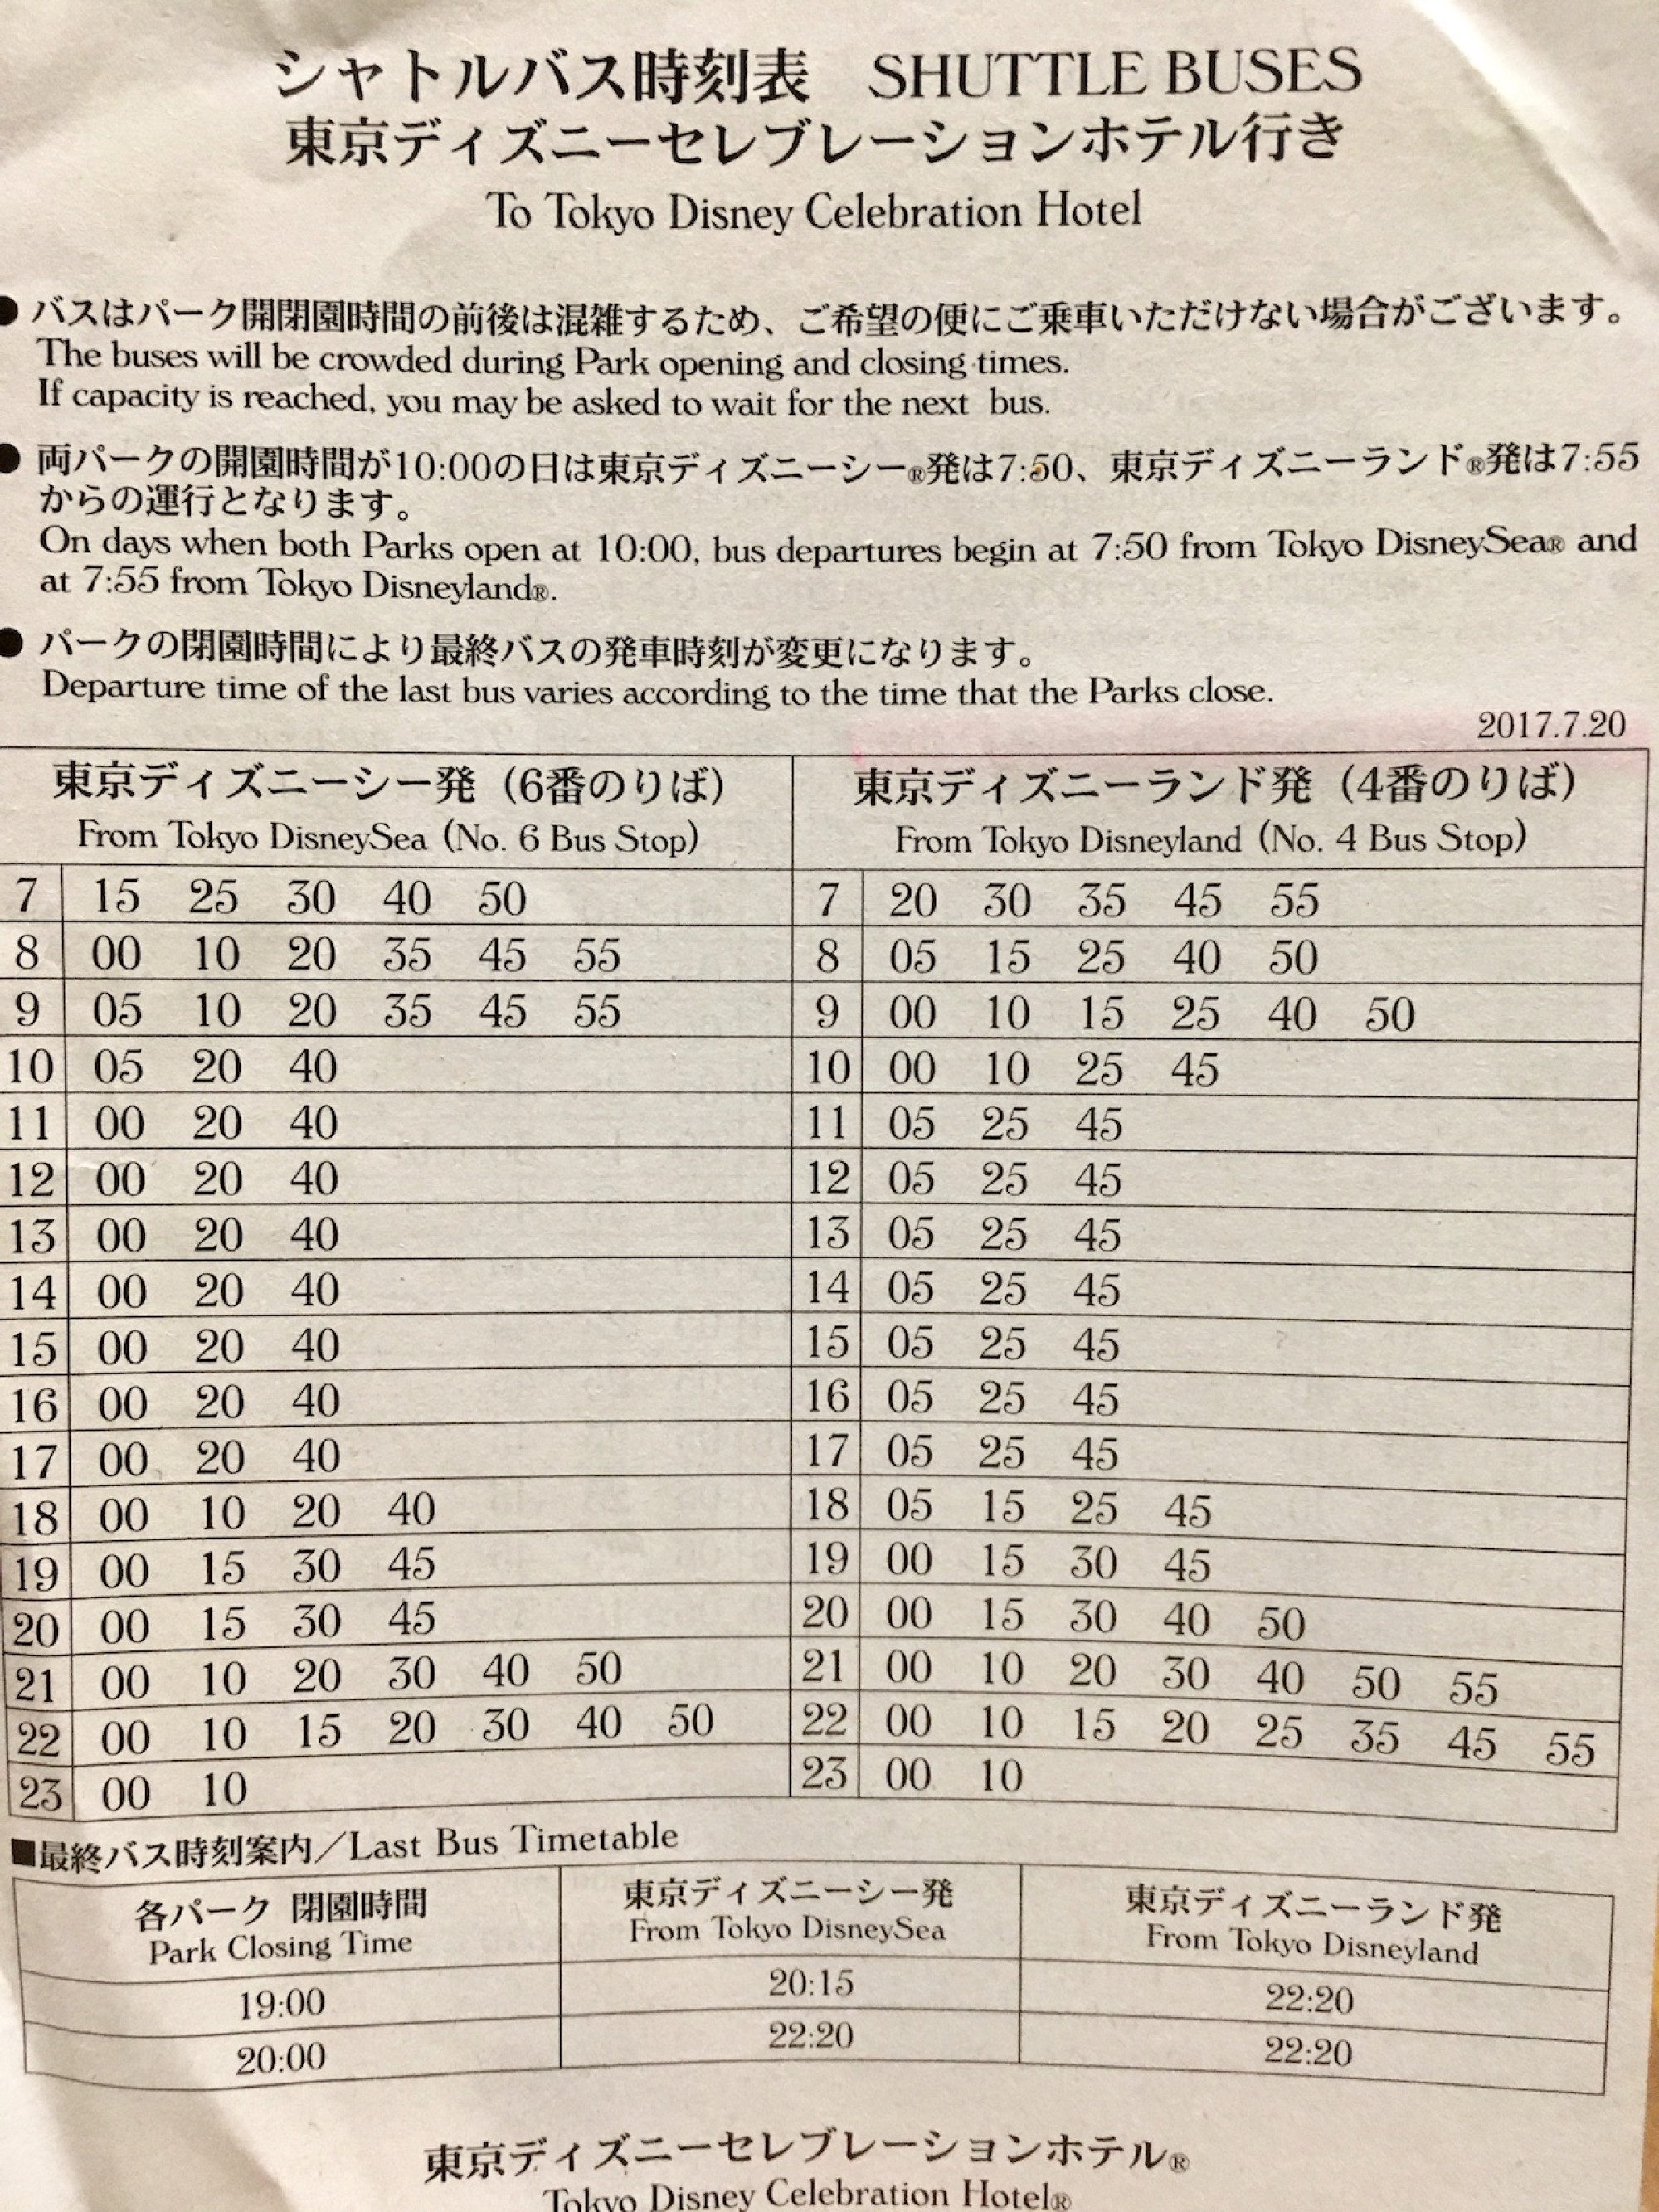 シャトルバス時刻表 SHUTTLE BUSES
東京ディズニーセレブレーションホテル行き
To Tokyo Disney Celebration Hotel
● バスはパーク開閉園時間の前後は混雑するため、ご希望の便にご乗車いただけない場合がございます。
The buses will be crowded during Park opening and closing times.
If capacity is reached, you may be asked to wait for the next bus.
● 両パークの開園時間が10:00の日は東京ディズニーシー®発は7:50、東京ディズニーランド®発は7:55
からの運行となります。
On days when both Parks open at 10:00, bus departures begin at 7:50 from Tokyo DisneySea® and
at 7:55 from Tokyo Disneyland®.
● パークの閉園時間により最終バスの発車時刻が変更になります。
Departure time of the last bus varies according to the time that the Parks close.
2017.7.20
東京ディズニーシー発（6番のりば） 東京ディズニーランド発（4番のりば）
From Tokyo DisneySea (No. 6 Bus Stop) From Tokyo Disneyland (No. 4 Bus Stop)
7 15 25 30 40 50 7 20 30 35 45 55
8 00 10 20 35 45 55 8 05 15 25 40 50
9 05 10 20 35 45 55 9 00 10 15 25 40 50
10 05 20 40 10 00 10 25 45
11 00 20 40 11 05 25 45
12 00 20 40 12 05 25 45
13 00 20 40 13 05 25 45
14 00 20 40 14 05 25 45
15 00 20 40 15 05 25 45
16 00 20 40 16 05 25 45
17 00 20 40 17 05 25 45
18 00 10 20 40 18 05 15 25 45
19 00 15 30 45 19 00 15 30 45
20 00 15 30 45 20 00 15 30 40 50
21 00 10 20 30 40 50 21 00 10 20 30 40 50 55
22 00 10 15 20 30 40 50 22 00 10 15 20 25 35 45 55
23 00 10 23 00 10
■最終バス時刻案内／Last Bus Timetable
各パーク 閉園時間 東京ディズニーシー発 東京ディズニーランド発
Park Closing Time From Tokyo DisneySea From Tokyo Disneyland
19:00 20:15 22:20
20:00 22:20 22:20
東京ディズニーセレブレーションホテル®
Tokyo Disney Celebration Hotel®